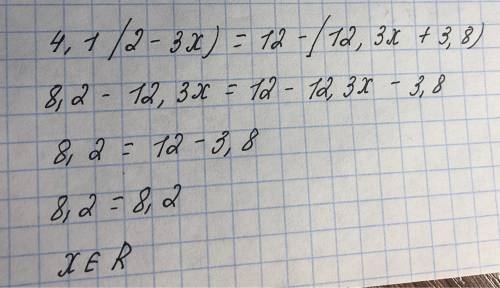 4,1 (2 - 3x) = 12 - (12,3x + 3,8)
8,2 - 12,3x = 12 - 12,3x - 3,8
8,2 = 12 - 3,8
8,2 = 8,2
x ∈ R